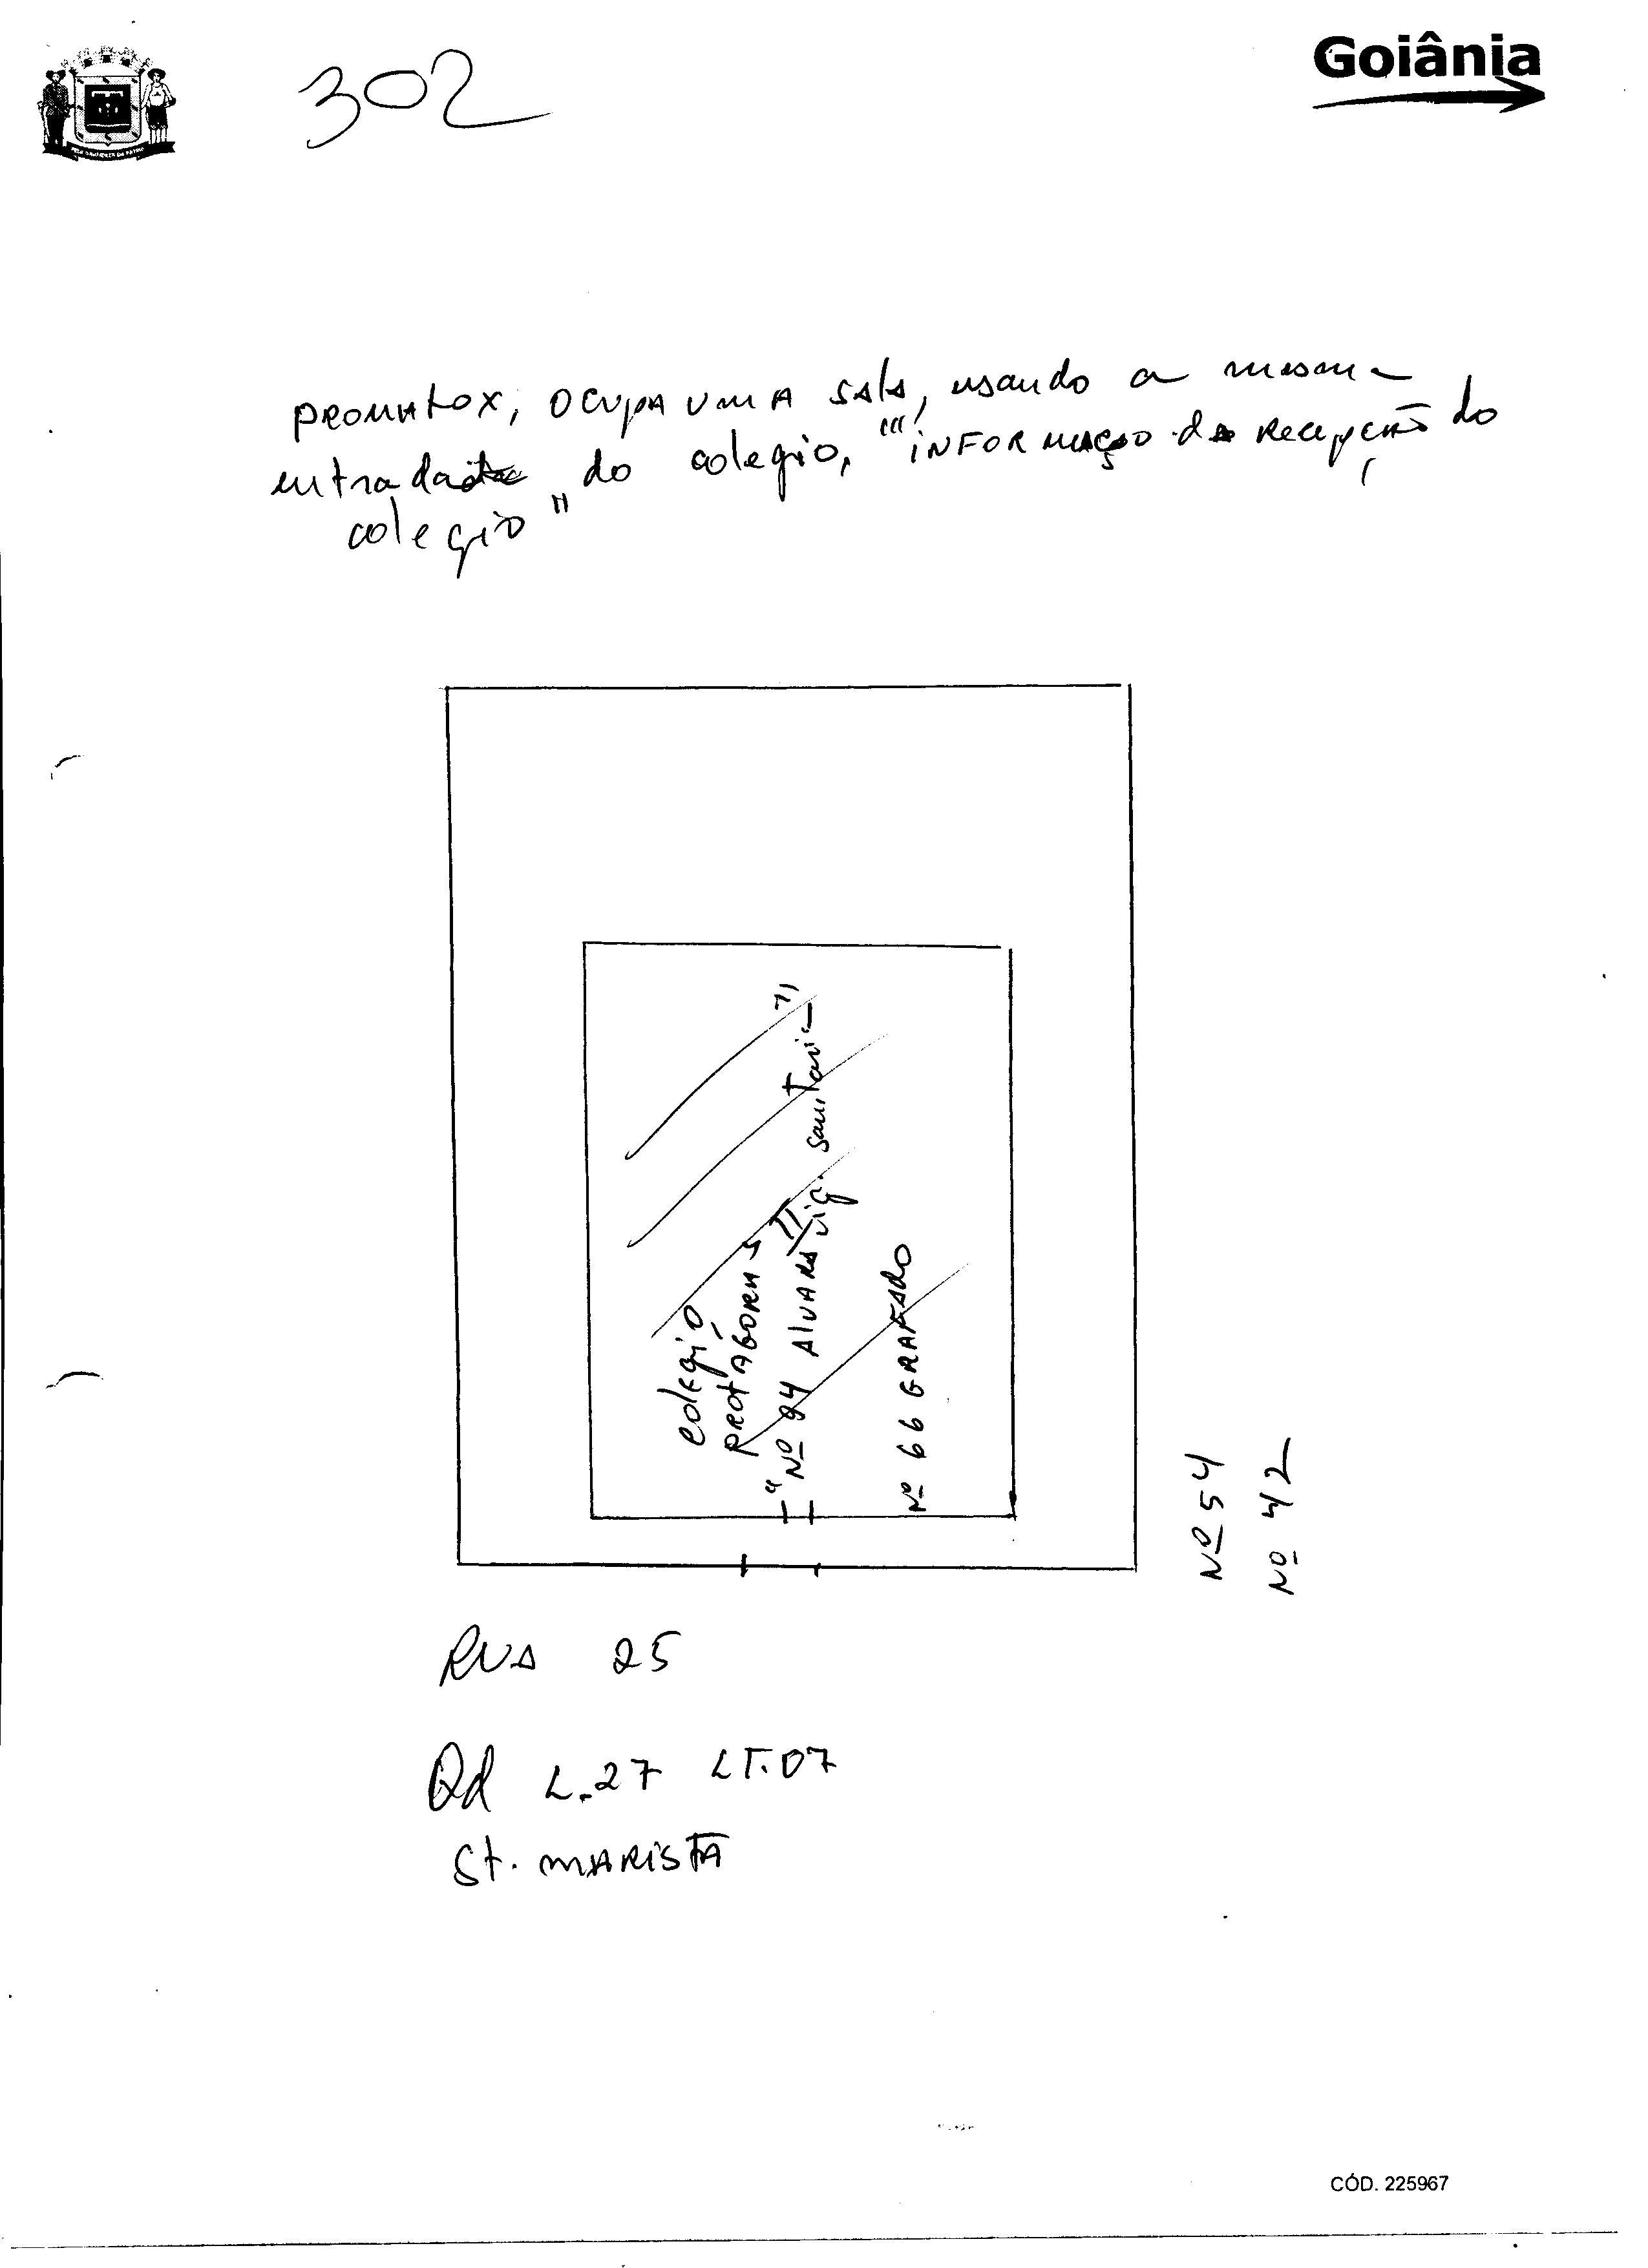 302
Goiânia
PROMATOX, OCUPA UMA SALA, usando a mesma
entrada do colegio, "INFORMAÇÃO da Recepção do
colegio"
colegio
PROTAGORAS II
"Nº 94 AlVARA vig. sanitari"
Nº 66 GRAFADO
Nº 54
Nº 42
RUA 25
Qd L.27 LT.07
St. MARISTA
CÓD. 225967